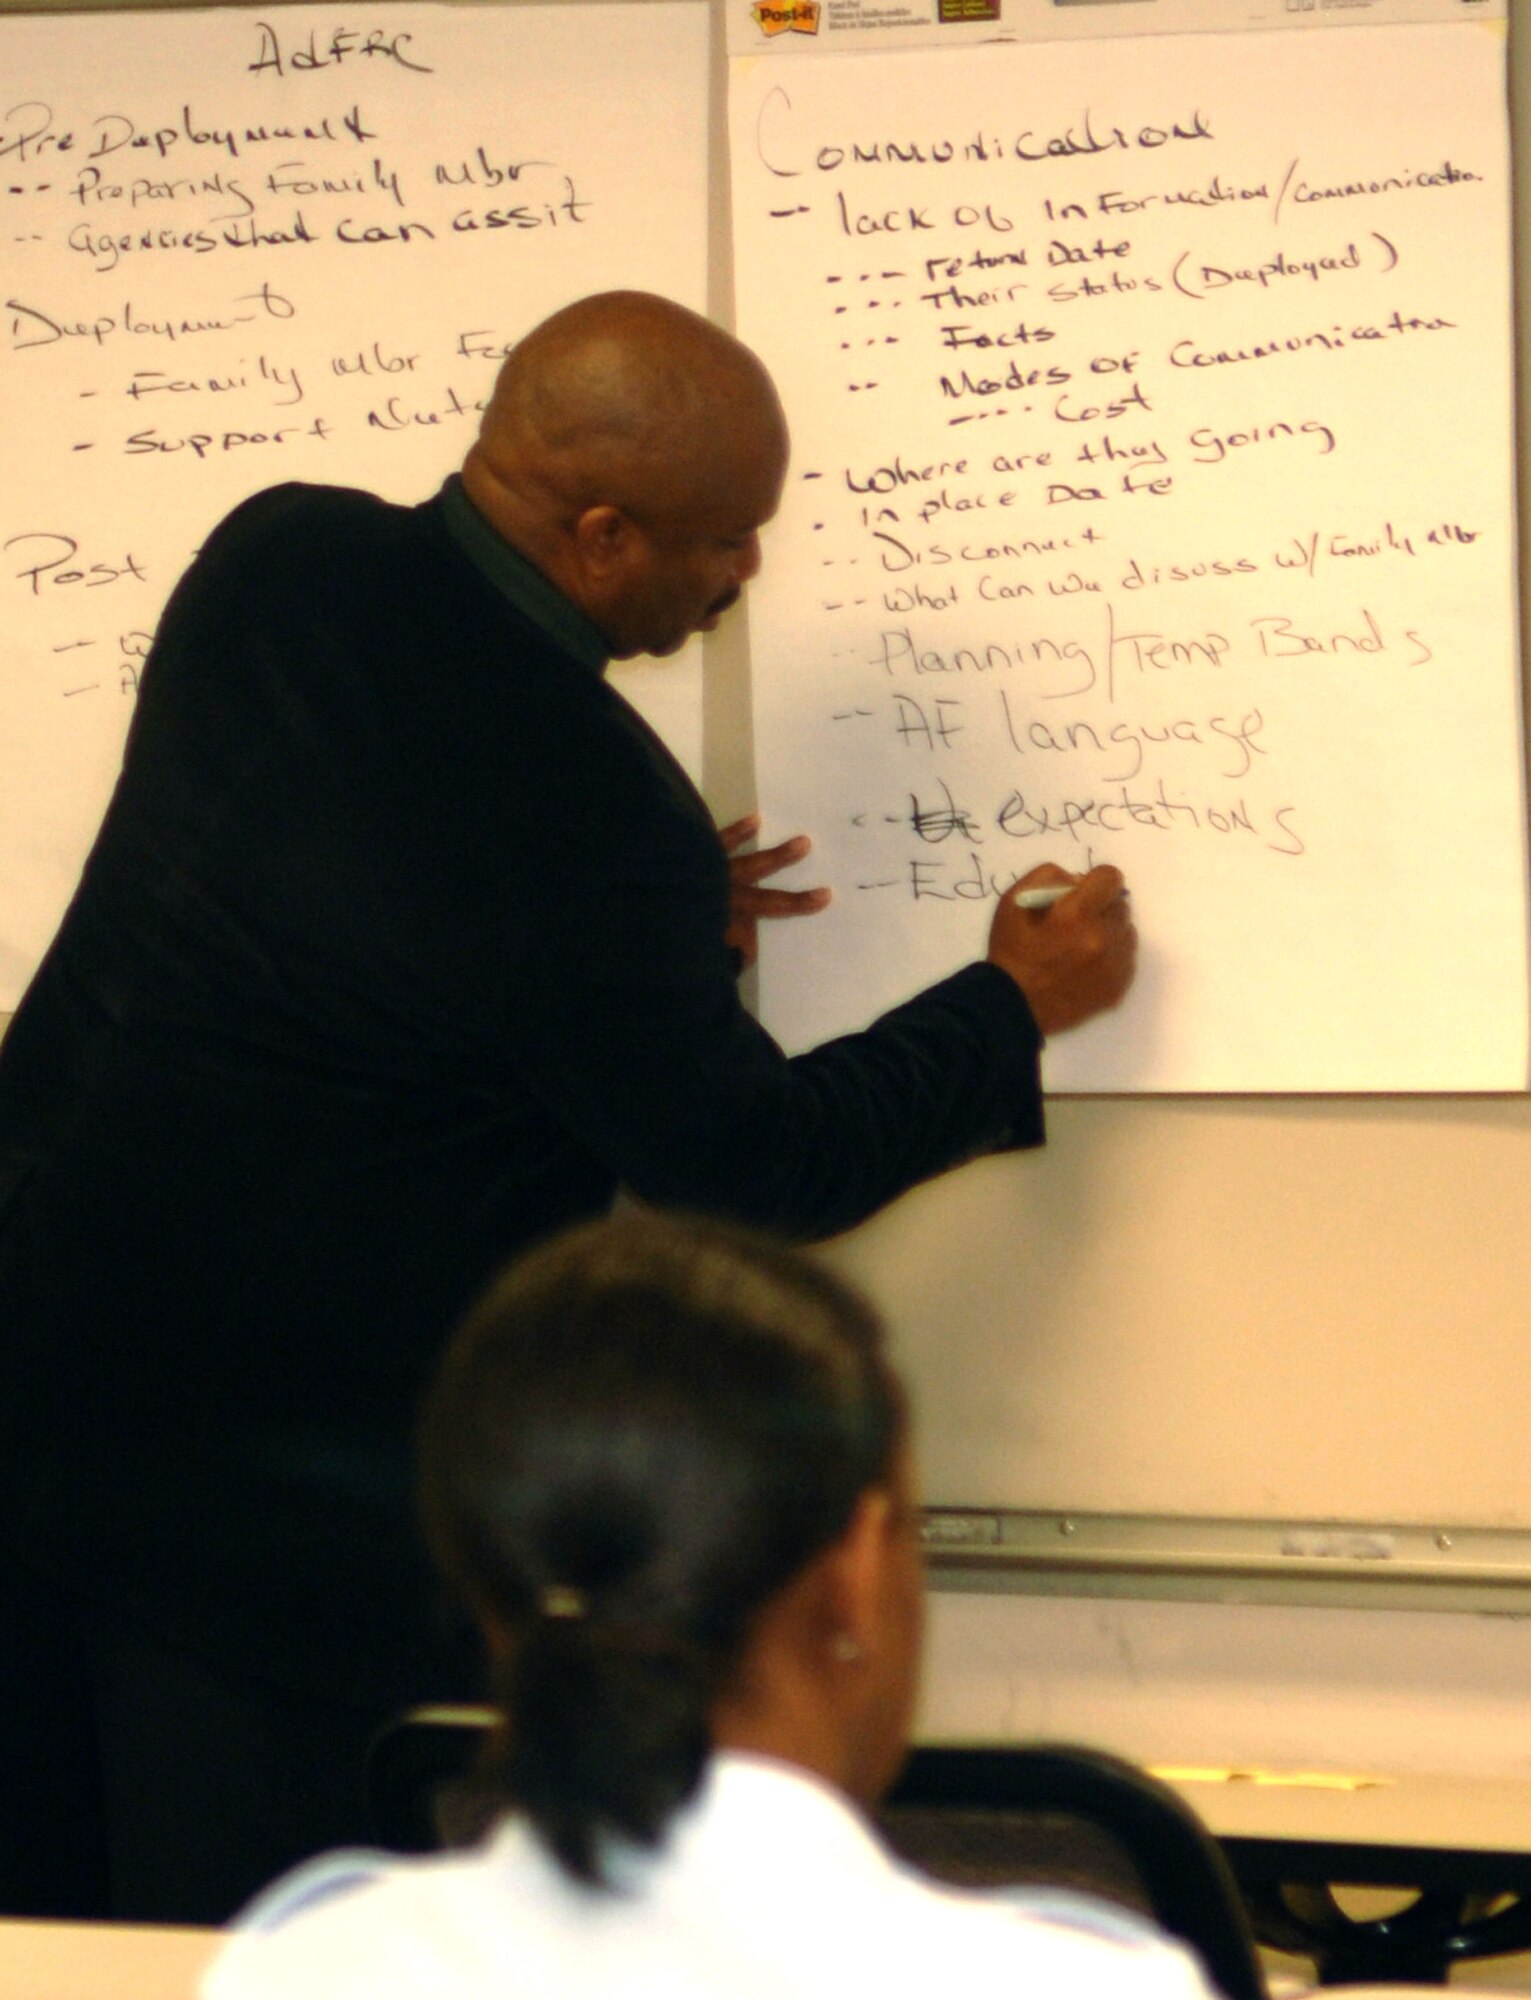 AdFRC
Pre Deployment
-- Preparing Family Mbr
-- Agencies that can assit
Deployment
- Family Mbr
- Support
Post
Post-it
Communication
-- lack of Information/communication
--- return Date
--- Their status (Deployed)
--- Facts
-- Modes of Communication
---- Cost
- Where are they going
- In place Date
-- Disconnect
-- What can we disuss w/ Family Mbr
-- Planning/Temp Bands
-- AF language
-- expectations
-- Edu